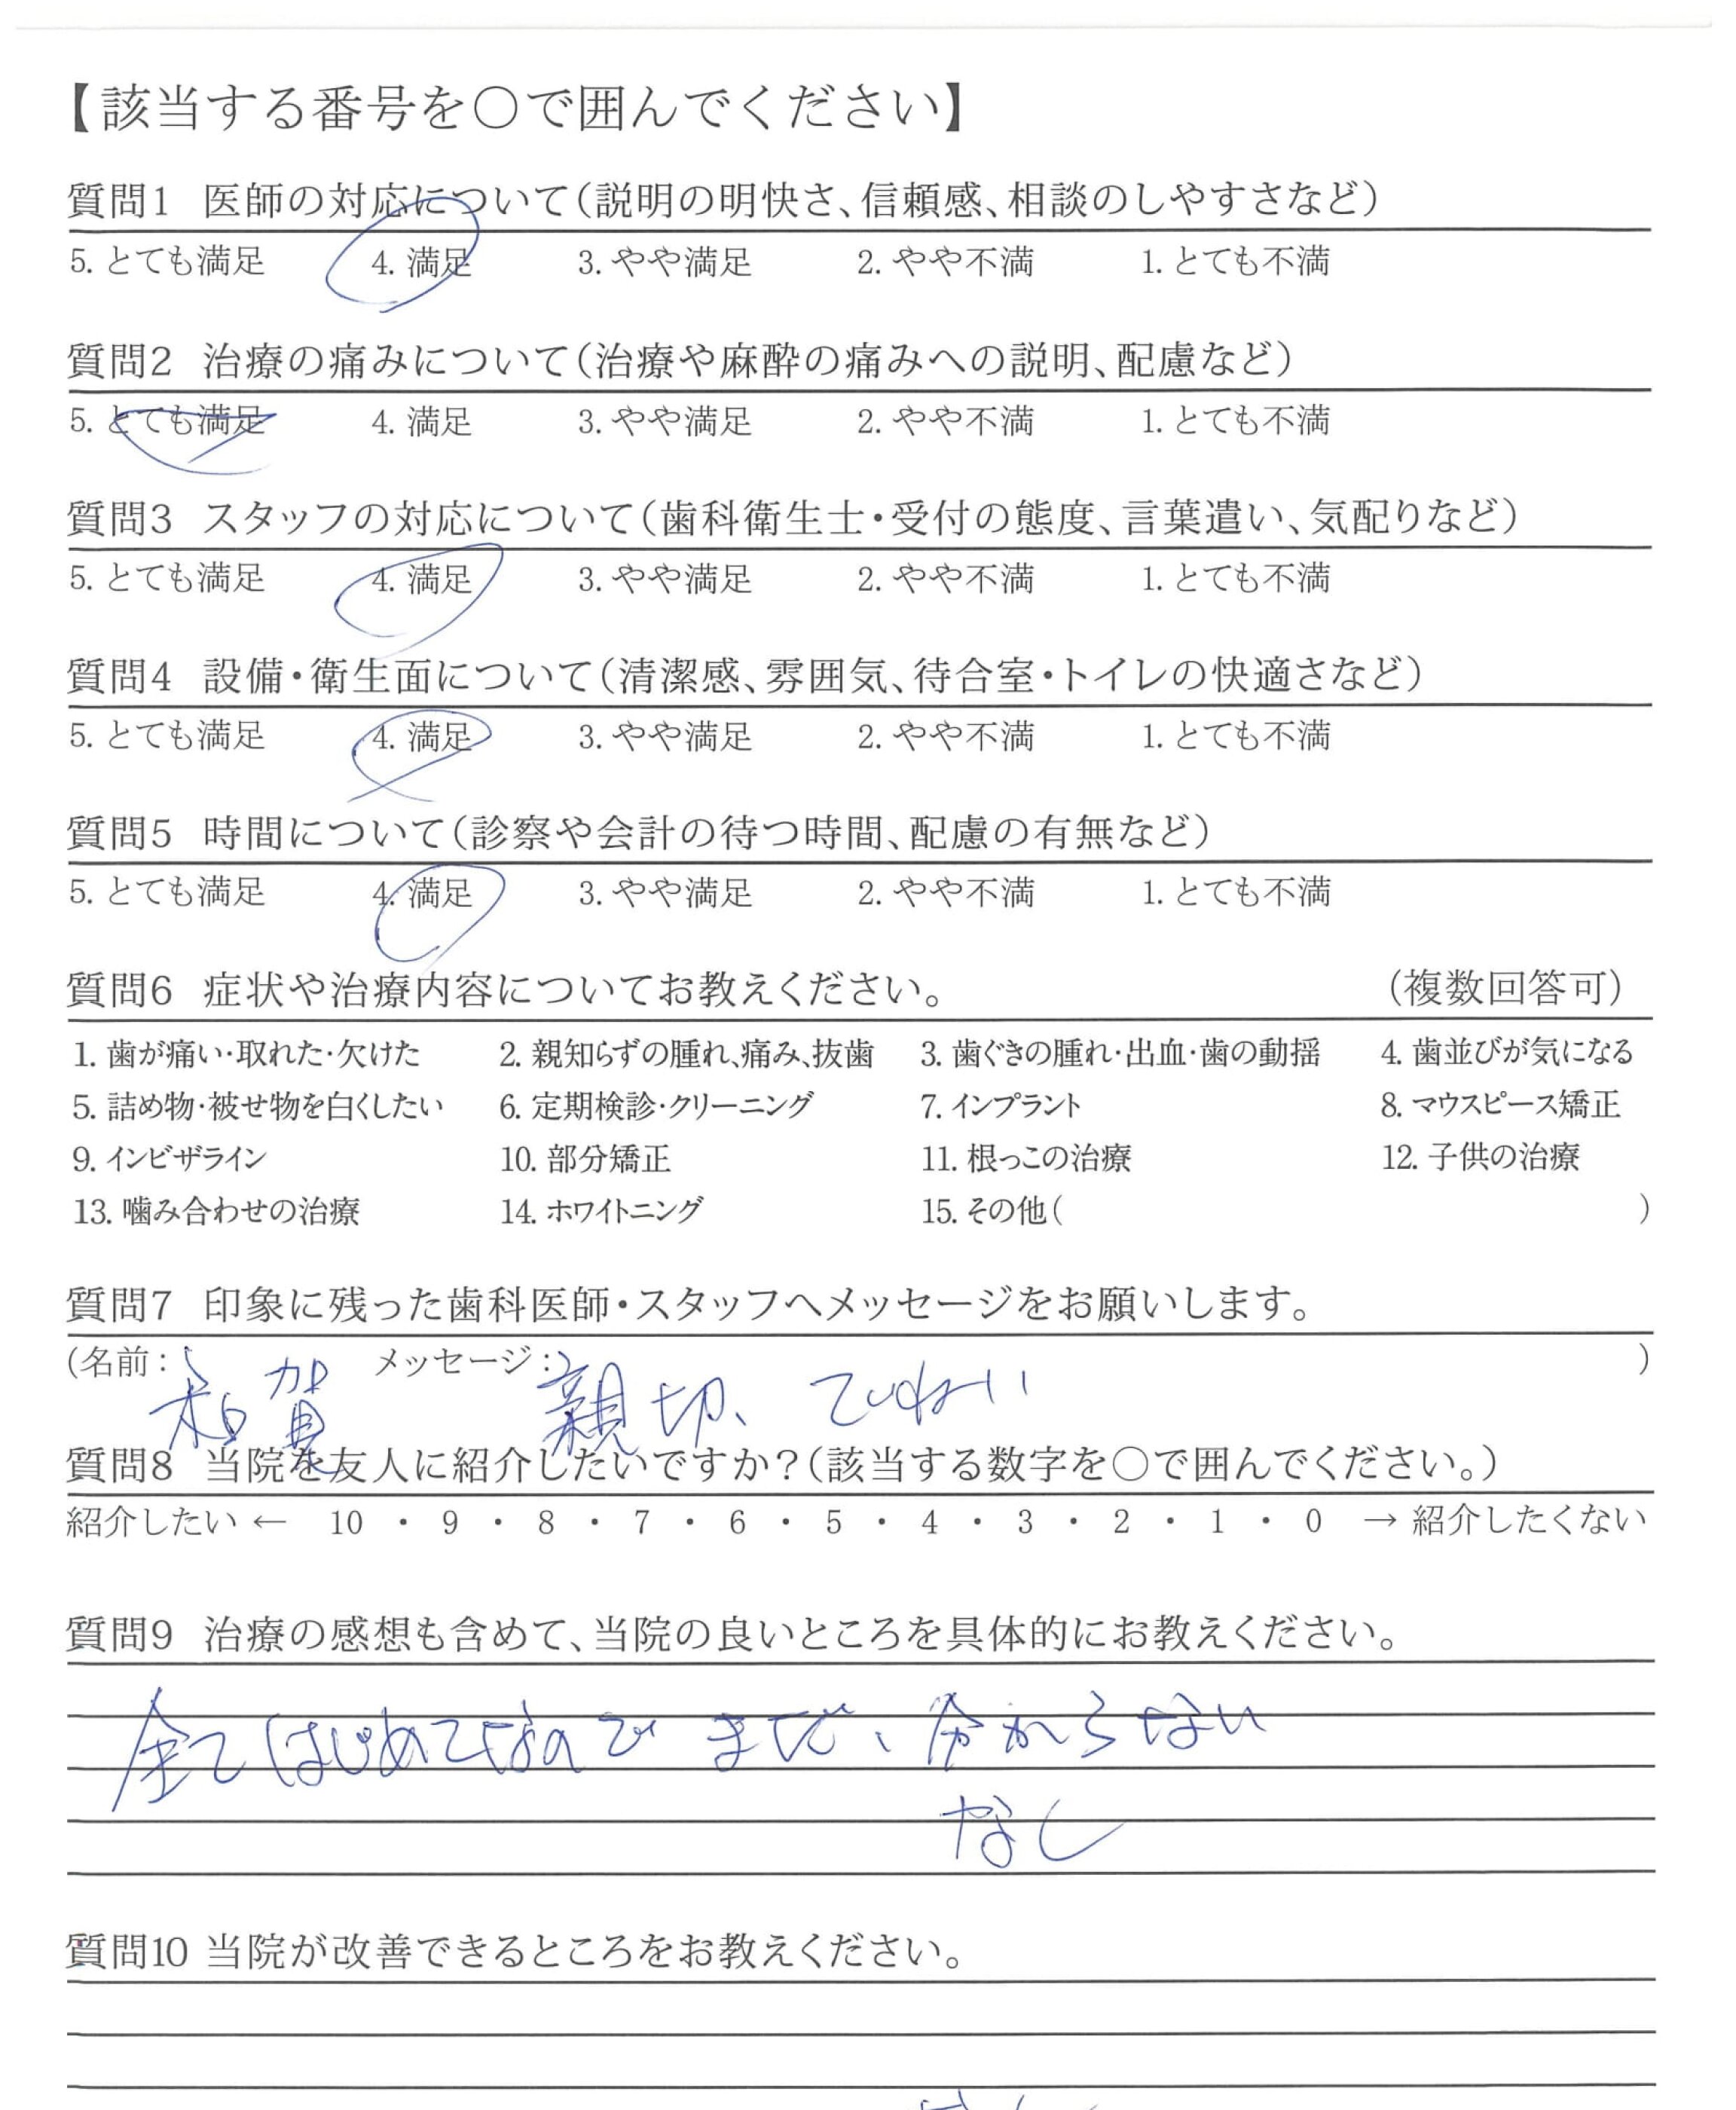 【該当する番号を○で囲んでください】
質問1 医師の対応について(説明の明快さ、信頼感、相談のしやすさなど)
5. とても満足 4. 満足 3. やや満足 2. やや不満 1. とても不満
質問2 治療の痛みについて(治療や麻酔の痛みへの説明、配慮など)
5. とても満足 4. 満足 3. やや満足 2. やや不満 1. とても不満
質問3 スタッフの対応について(歯科衛生士・受付の態度、言葉遣い、気配りなど)
5. とても満足 4. 満足 3. やや満足 2. やや不満 1. とても不満
質問4 設備・衛生面について(清潔感、雰囲気、待合室・トイレの快適さなど)
5. とても満足 4. 満足 3. やや満足 2. やや不満 1. とても不満
質問5 時間について(診察や会計の待つ時間、配慮の有無など)
5. とても満足 4. 満足 3. やや満足 2. やや不満 1. とても不満
質問6 症状や治療内容についてお教えください。 (複数回答可)
1. 歯が痛い・取れた・欠けた 2. 親知らずの腫れ、痛み、抜歯 3. 歯ぐきの腫れ・出血・歯の動揺 4. 歯並びが気になる
5. 詰め物・被せ物を白くしたい 6. 定期検診・クリーニング 7. インプラント 8. マウスピース矯正
9. インビザライン 10. 部分矯正 11. 根っこの治療 12. 子供の治療
13. 噛み合わせの治療 14. ホワイトニング 15. その他( )
質問7 印象に残った歯科医師・スタッフへメッセージをお願いします。
(名前: 和賀 メッセージ: 親切、ていねい )
質問8 当院を友人に紹介したいですか?(該当する数字を○で囲んでください。)
紹介したい ← 10 ・ 9 ・ 8 ・ 7 ・ 6 ・ 5 ・ 4 ・ 3 ・ 2 ・ 1 ・ 0 → 紹介したくない
質問9 治療の感想も含めて、当院の良いところを具体的にお教えください。
全てはじめてなので まだ、分からない
なし
質問10 当院が改善できるところをお教えください。